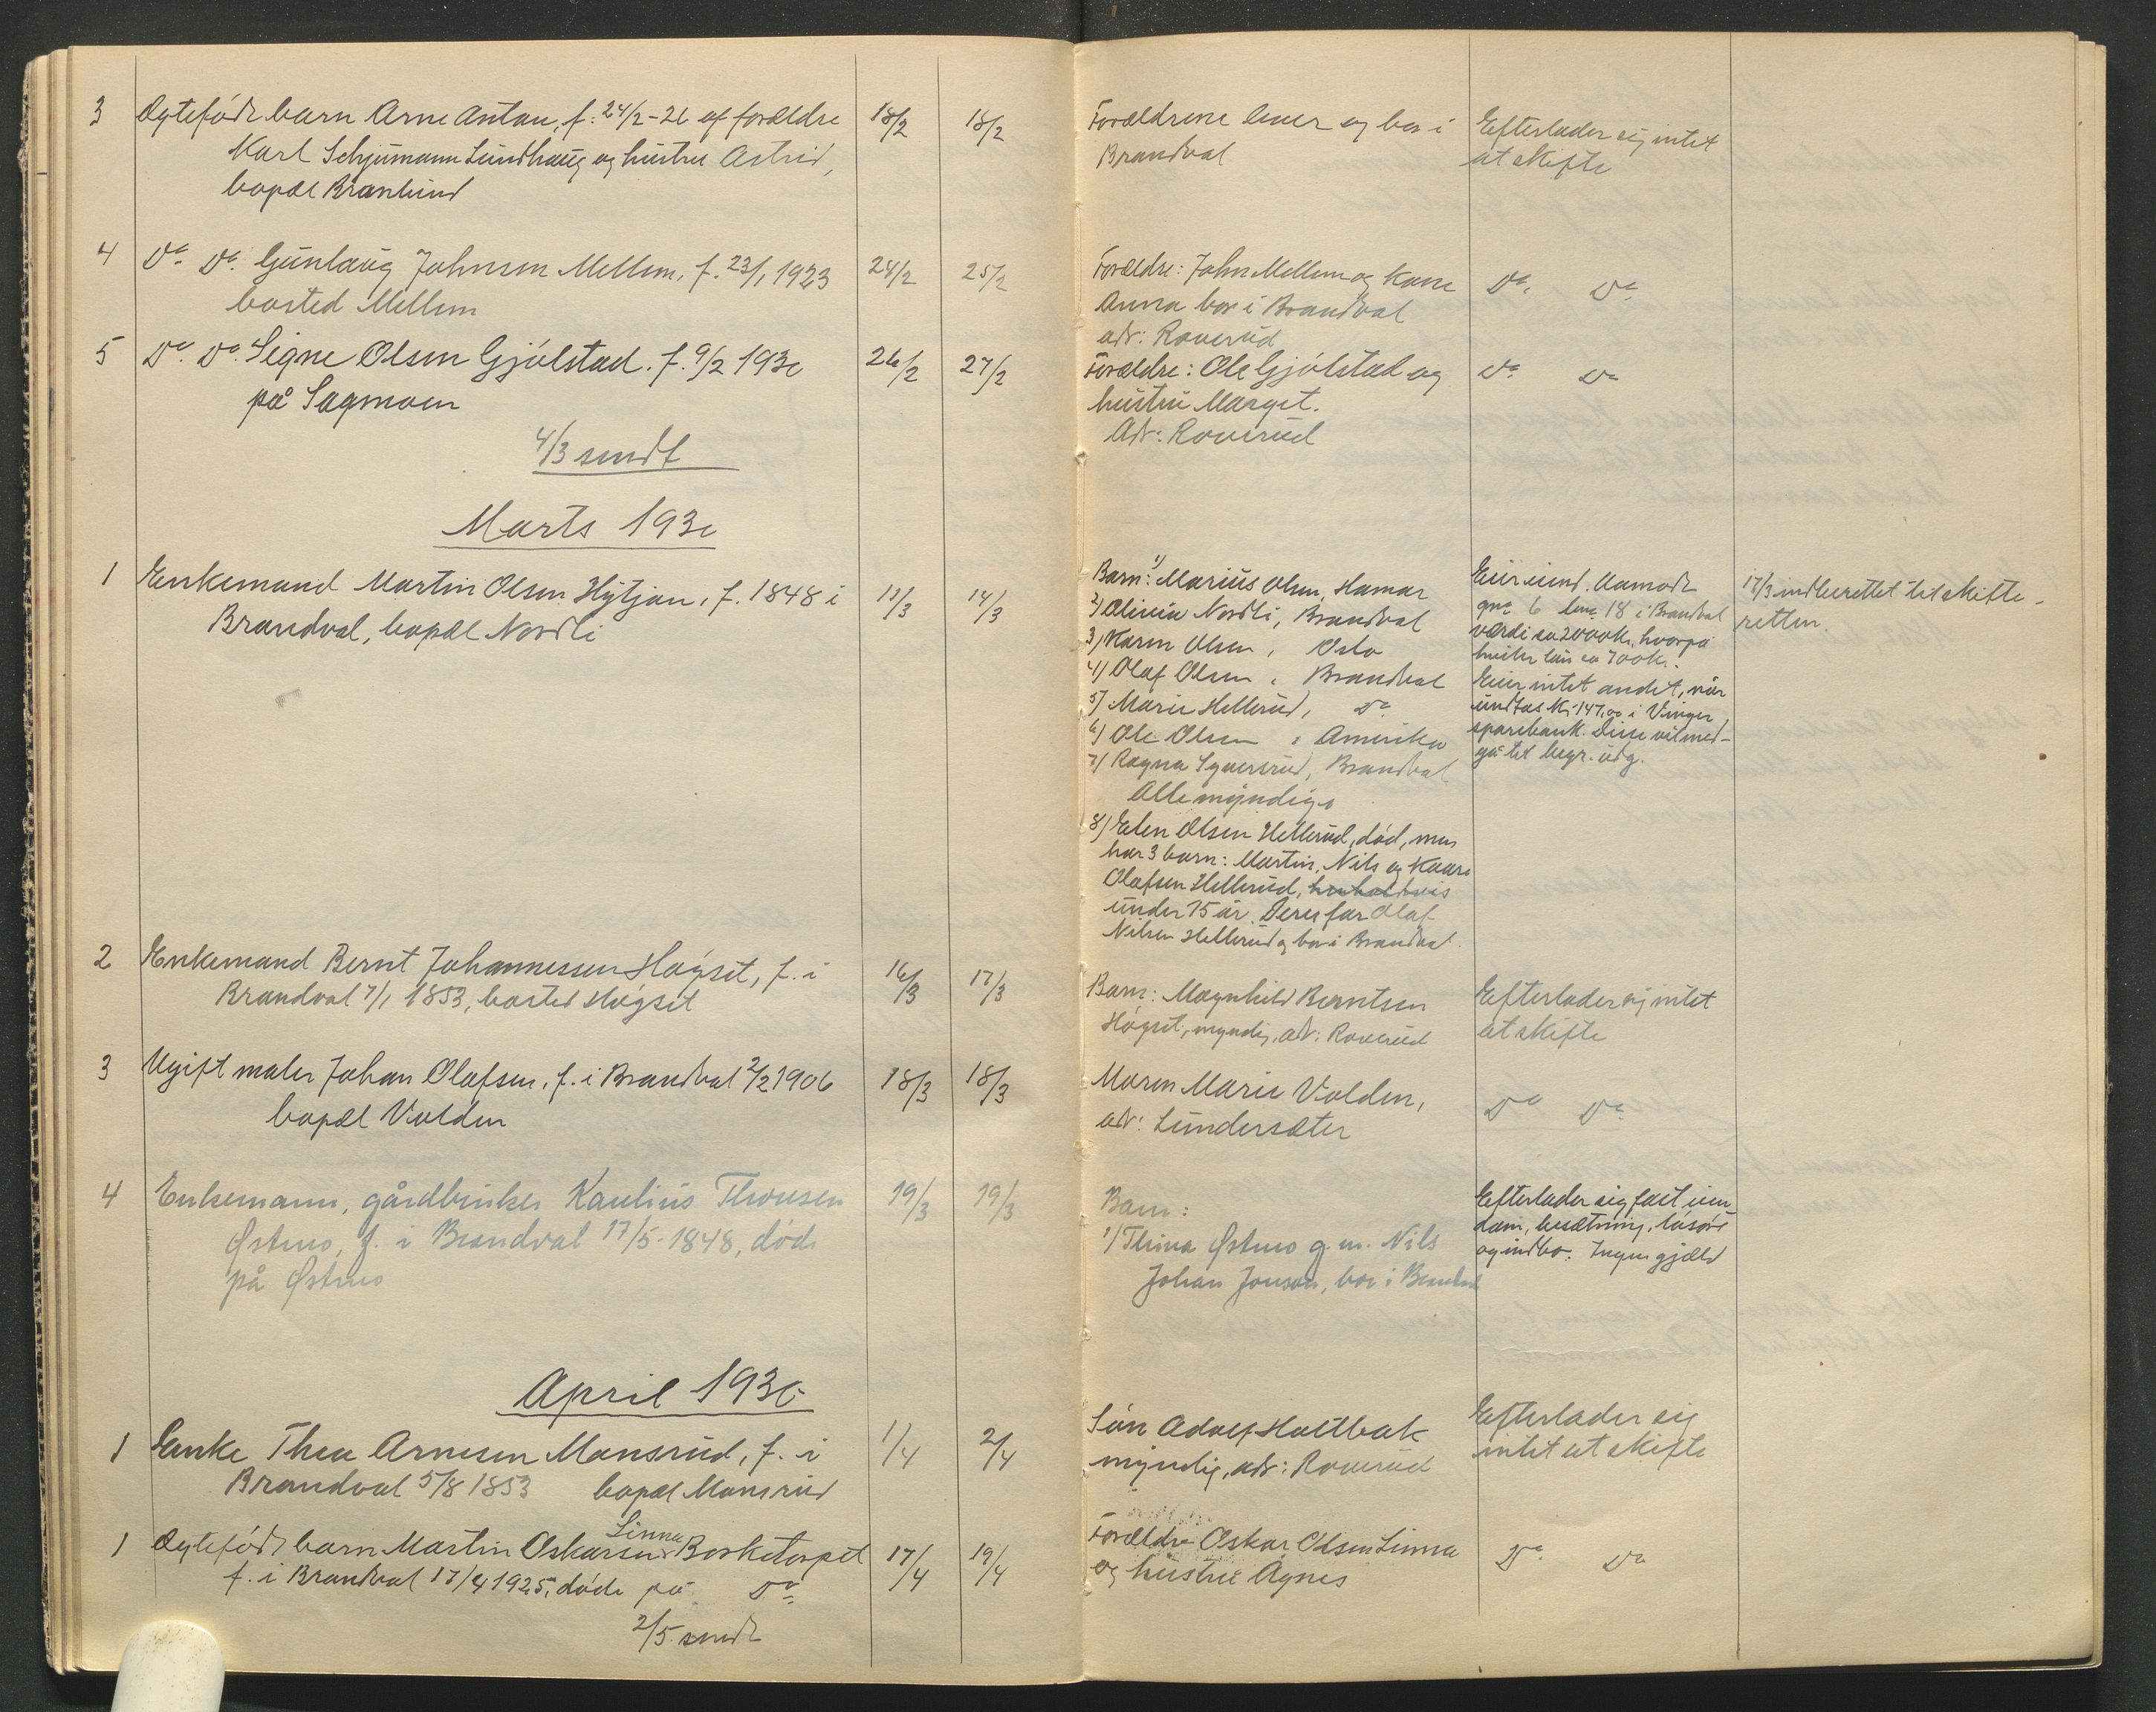 3 Ægtefødt barn Arne Antan, f. 24/2-26 af forældre 18/2 18/2 Forældrene lever og bor i Efterlader sig intet
Karl Schjumann Lundhaug og hustru Astrid, Brandval at skifte
bopæl Branlund
4 Do. Do. Gunlaug Johnsen Mellem, f. 23/1 1923 24/2 25/2 Forældre: John Mellem og Kone Do. Do.
bosted Mellem Anna bor i Brandval
adr: Roverud
5 Do. Do. Signe Olsen Gjølstad. f. 9/2 1930 26/2 27/2 Forældre: Ole Gjølstad og Do. Do
på Sagmoen hustru Marget.
Adr: Roverud
4/3 sendt
Marts 1930
1 Enkemand Martin Olsen Hytjan, f. 1848 i 13/3 14/3
Brandval, bopæl Nordli
Barn: 1) Marius Olsen, Hamar
2) Olivia Nordli, Brandval
3) Karen Olsen, Oslo
4) Olaf Olsen, Brandval
5) Marie Hellerud, Do.
6) Ole Olsen, Amerika
7) Ragna Syversrud, Brandval
Alle myndige
8) Elen Olsen Hellerud, død, men
har 3 barn: Martin, Nils og Kaare
Olafsen Hellerud, henholdsvis
under 15 år. Deres far Olaf
Nilsen Hellerud og bor i Brandval.
Eier eiend. Aamodt
gno 6 bno 18 i Brandval
værdi ca 2000k, hvorpå
hviler lån ca 700k.
Eier intet andet, når
undtas kr 147,00 i Vinger
sparebank. Disse vil med-
gå til begr. udg.
17/3 indberettet til skifte-
retten.
2 Enkemand Bernt Johannessen Høgset, f. i 16/3 17/3 Barn: Magnhild Berntsen Efterlader sig intet
Brandval 7/1 1853, bosted Høgset Høgset, myndig, adr: Roverud at skifte
3 Ugift maler Johan Olafsen, f. i Brandval 2/2 1906 18/3 18/3 Maren Marie Volden, Do Do.
bopæl Volden adr: Lundersæter
4 Enkemann, gårdbruker Kaulius Thoresen 19/3 19/3 Barn: Efterlader sig fast eien-
Østmo, f. i Brandval 17/5-1848, døde 1) Thina Østmo g.m. Nils dom, besætning, løsøre
på Østmo Johan Jonson, bor i Brandval og indbo. Ingen gjæld
April 1930
1 Enke Thea Arnesen Monsrud, f. i 1/4 2/4 Søn Adolf Holtbak Efterlader sig
Brandval 5/8 1853 bopæl Monsrud myndig, adr: Roverud intet at skifte
1 Ægtefødt barn Martin Oskarsen Linna Børketorpet 17/4 19/4 Forældre Oskar Olsen Linna Do. Do
f. i Brandval 17/4 1925, døde på Do. og hustru Agnes
2/5 sendt